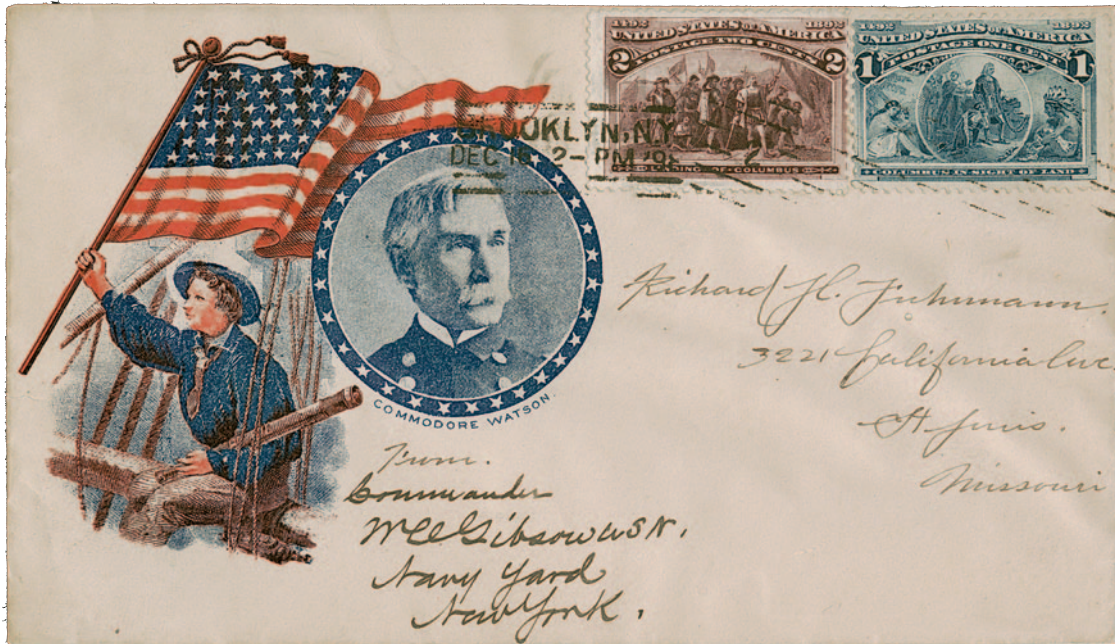 1492 1892
UNITED STATES OF AMERICA
POSTAGE TWO CENTS
2 2
LANDING OF COLUMBUS
1492 1892
UNITED STATES OF AMERICA
POSTAGE ONE CENT
1 1
COLUMBUS IN SIGHT OF LAND
BROOKLYN, N.Y.
DEC 2-PM
COMMODORE WATSON.
Richard H. Fuhrmann.
3221 California Ave.
St. Louis.
Missouri
From.
Commander
Gibson USN.
Navy Yard
New York.